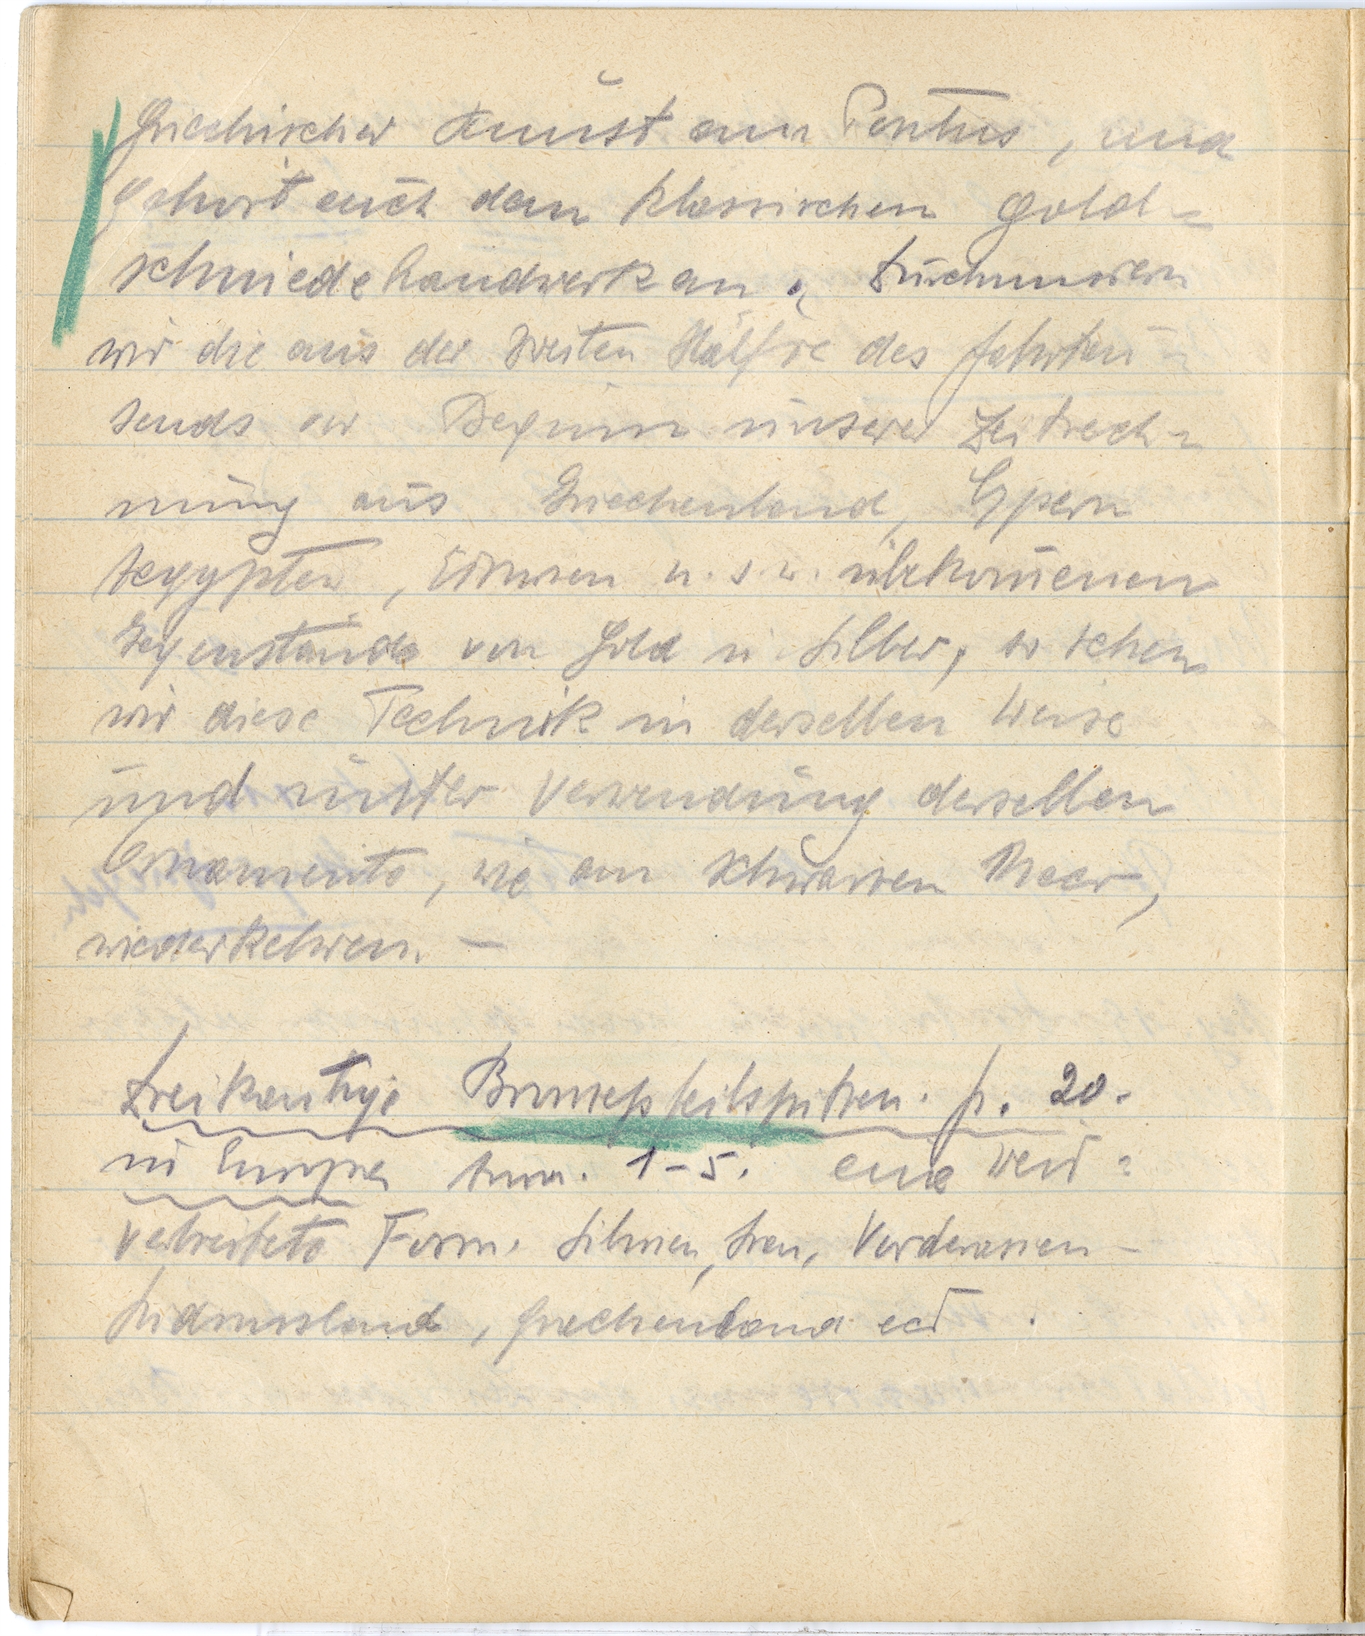 Griechischer Kunst am Pontus, und
gehört auch dem klassischen Gold=
schmiedehandwerk an. Durchmustern
wir die aus der zweiten Hälfte des Jahrtau=
sends vor Beginn unserer Zeitrech=
nung aus Griechenland, Cypern
Aegypten, Etrurien u. s. w. überkom̄enen
Gegenstände von Gold u Silber, so sehen
wir diese Technik in derselben Weise
und unter Verwendung derselben
Ornamente, wie am schwarzen Meer,
wiederkehren. —
Dreikantige Bronzepfeilspitzen. p. 20.
in Europa 1-5. eine weit=
verbreitete Form. Sibirien, Iran, Vorderasien -
Südrussland, Griechenland ect.